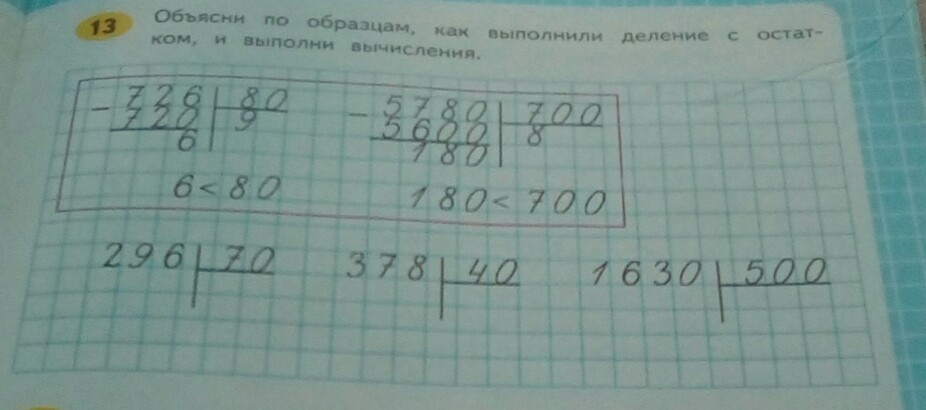 13 Объясни по образцам, как выполнили деление с остат-
ком, и выполни вычисления.
- 726 80 - 5780 700
720 9 5600 8
6 180
6 < 80 180 < 700
296 70 378 40 1630 500